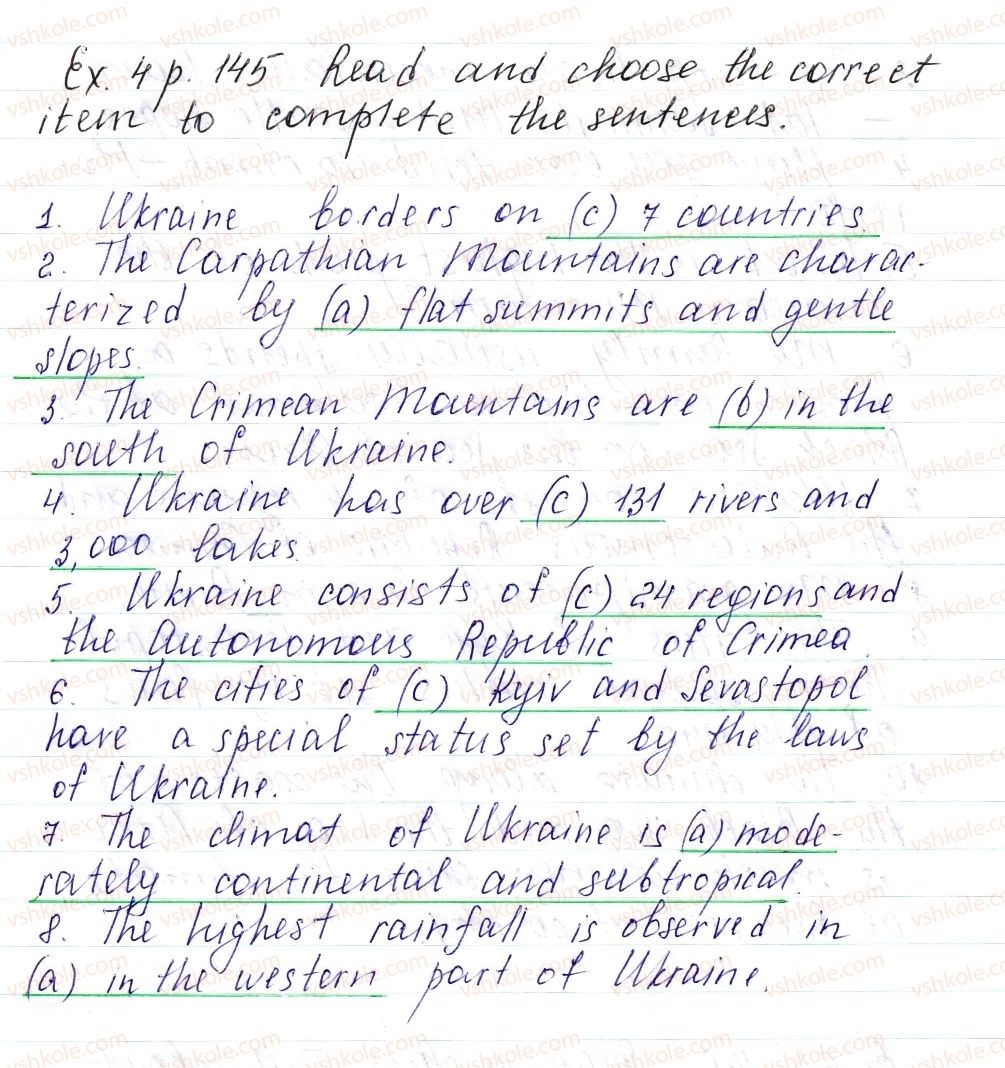 Ex. 4 p. 145 Read and choose the correct
item to complete the sentences.
1. Ukraine borders on (c) 7 countries.
2. The Carpathian Mountains are charac-
terized by (a) flat summits and gentle
slopes.
3. The Crimean Mountains are (b) in the
south of Ukraine.
4. Ukraine has over (c) 131 rivers and
3,000 lakes.
5. Ukraine consists of (c) 24 regions and
the Autonomous Republic of Crimea.
6. The cities of (c) Kyiv and Sevastopol
have a special status set by the laws
of Ukraine.
7. The climat of Ukraine is (a) mode-
rately continental and subtropical.
8. The highest rainfall is observed in
(a) in the western part of Ukraine.
vshkole.com